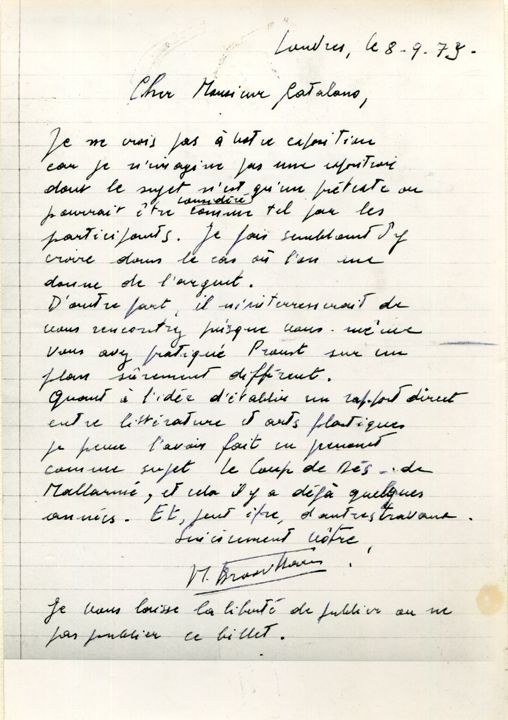 Londres, le 8-9-73.
Cher Monsieur Catalano,
Je ne crois pas à votre exposition
car je n'imagine pas une exposition
dont le sujet n'est qu'un prétexte ou
considéré
pourrait être comme tel par les
participants. Je fais semblant d'y
croire dans le cas où l'on me
donne de l'argent.
D'autre part, il m'intéresserait de
vous rencontrer puisque vous-même
vous avez pratiqué Proust sur un
plan sûrement différent.
Quant à l'idée d'établir un rapport direct
entre littérature et arts plastiques
je pense l'avoir fait en prenant
comme sujet le Coup de Dés - de
Mallarmé, et cela il y a déjà quelques
années. Et, peut être, d'autres travaux.
Sincèrement vôtre,
M. Broodthaers.
Je vous laisse la liberté de publier ou ne
pas publier ce billet.